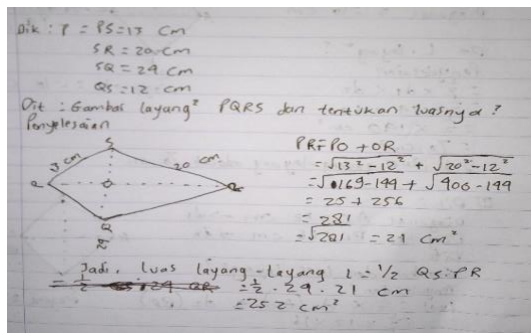 Dik : P = PS = 13 cm
SR = 20 cm
SQ = 24 cm
QS = 12 cm
Dit : Gambar layang² PQRS dan tentukan luasnya ?
Penyelesaian
S
13 cm
20 cm
O
Q
PR = PO + OR
= √13² - 12² + √20² - 12²
= √169 - 144 + √400 - 144
= 25 + 256
= 281
= √281 = 21 cm²
Jadi, luas layang-layang L = 1/2 QS . PR
= 1/2 . 24 . 21 cm
= 252 cm²